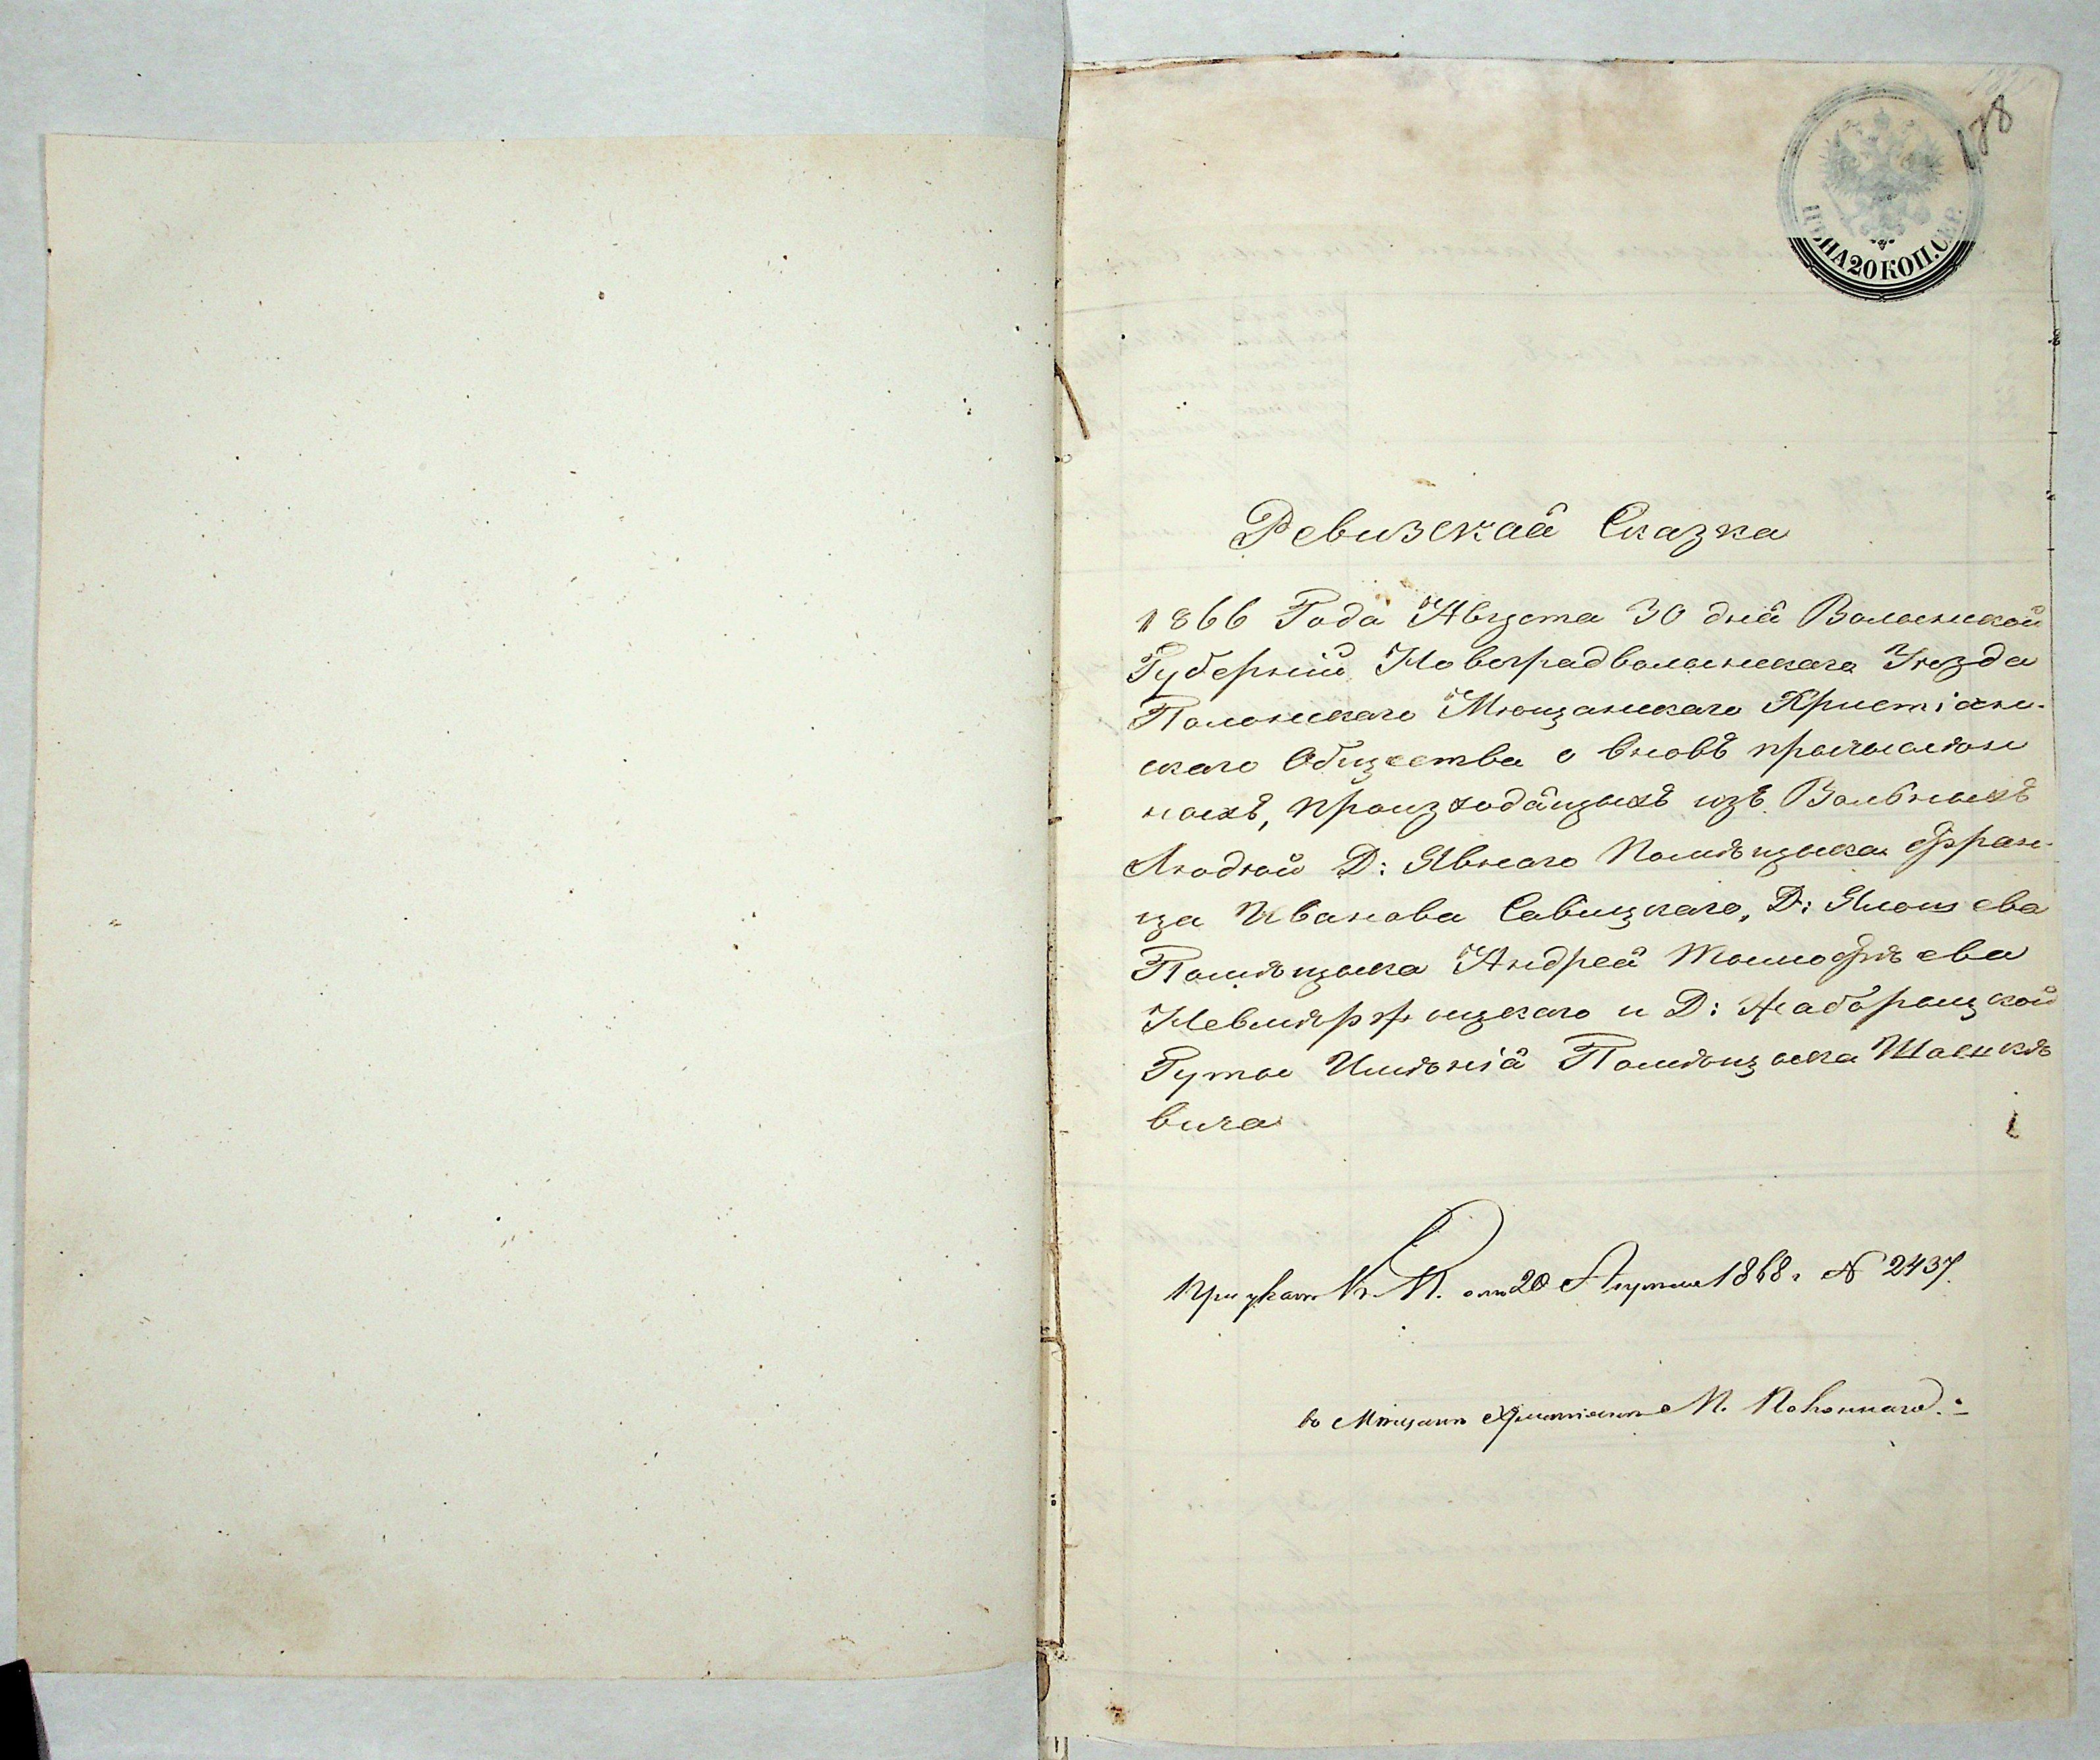 178
ЦѢНА 20 КОП. СЕР.
Ревизская Сказка
1866 Года Августа 30 дня Волынской
Губерніи Новоградволынскаго Уѣзда
Полонскаго Мѣщанскаго Христіанс-
скаго Общества о вновь причислен
ныхъ, произходящыхъ изъ Вольныхъ
Людей Д: Явнаго Помѣщыка Фран-
ца Иванова Савицкаго, Д:
Помѣщыка Андрея Тимофѣева
Невмержыцкаго и Д:
Гуты Имѣнія Помѣщыка
вича
При указѣ К. П. отъ 20 1868 г. № 2437.
въ Мѣщане Христіане М. Полоннаго.